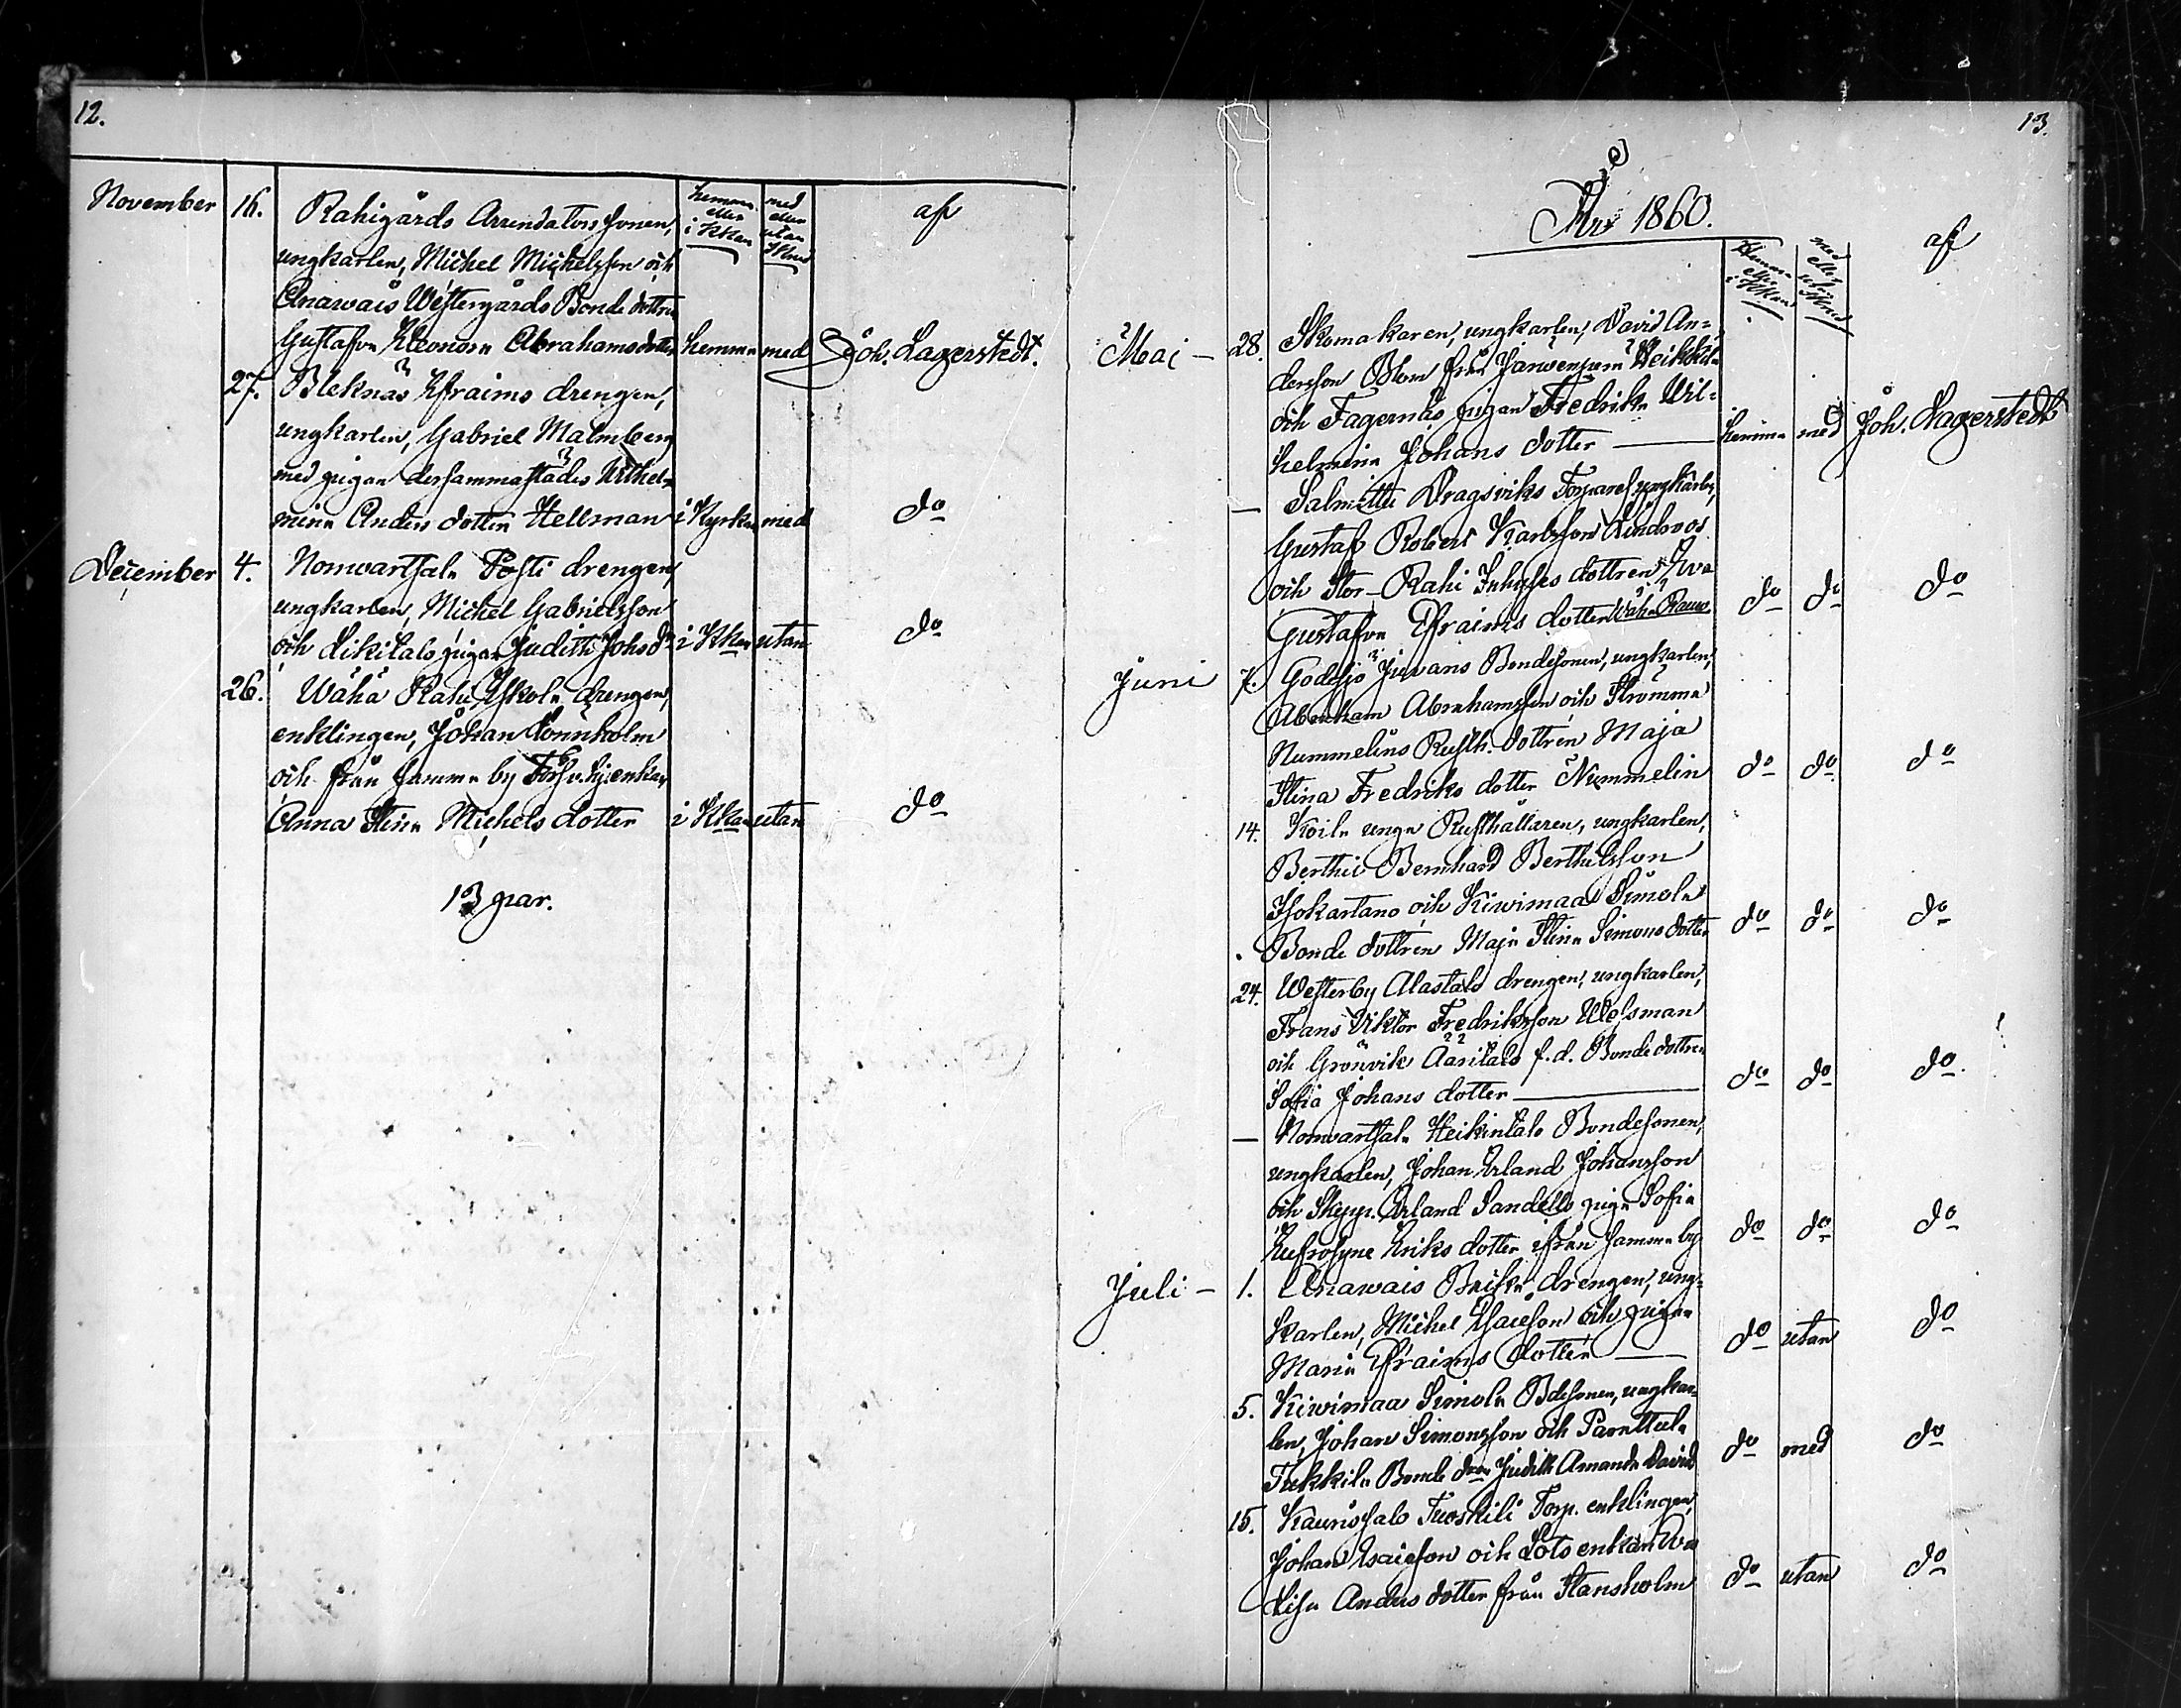 12.
November 16. Rahigårds Arrendators sonen, hemma eller i Kkan med eller utan af
ungkarlen, Michel Michelsson och
Anawais Westergårds Bonde dottren
Gustafva Eleonora Abrahamsdotter hemma med Joh. Lagerstedt.
27. Bleknäs Efraims drengen,
ungkarlen, Gabriel Malmberg
med pigan dersammastädes Wilhel-
mina Anders dotter Hellman i Kyrkan med do
December 4. Nonwartsala Påsti drengen,
ungkarlen, Michel Gabrielsson
och Likilals pigan Judith Johsdr i Kkan utan do
26. Wähä Rahi Yskola drengen,
enklingen, Johan Lönnholm
och från samma by enkan
Anna Stina Michels dotter i Kkan utan do
13 par.
13.
År 1860.
Hemma eller i Kkan med eller utan af
Maj – 28. Skomakaren, ungkarlen, David An=
dersson Blom från Järwenperä Heikkilä
och Fagernäs pigan Fredrika Wil=
helmina Johans dotter — hemma med Joh. Lagerstedt
— Salmittu Dragsviks Torpares. ungkarlen,
Gustaf Robert Karlsson Lindroos
och Stor-Rahi Inhyses dottren Eva
Gustafva Efraims dotter do do do
Juni 7. Godsjö Juvans Bondesonen, ungkarlen,
Abraham Abrahamsson och Strömma
Nummelins Rusth. dottren Maja
Stina Fredriks dotter Nummelin do do do
14. Koila unga Rusthållaren, ungkarlen,
Berthil Bernhard Berthilsson
Isokartano och Kiwimaa Simola
Bonde dottren Maja Stina Simons dotter do do do
24. Westerby Alastalo drengen, ungkarlen,
Frans Viktor Fredriksson Welsman
och Grönvik Äärilals f.d. Bonde dottren
Sofia Johans dotter — do do do.
— Nonwartsala Heikintalo Bondesonen,
ungkarlen, Johan Erland Johansson
och Skepp. Erland Sandells piga Sofia
Eufrosyne Eriks dotter ifrån samma by do do do
Juli – 1. Anawais Brusila drengen, ung=
karlen, Michel Isacsson och pigan
Maria Efraims dotter — do utan do
5. Kiwimaa Simola Bdesonen, ungkar-
len, Johan Simonsson och Parattula
Tukkila Bonde dren Judith Amanda David do med do
15. Kaurissalo Tuoskili Torp. enklingen,
Johan Isacsson och Lots enkan Eva
Lisa Anders dotter från Stansholm do utan do